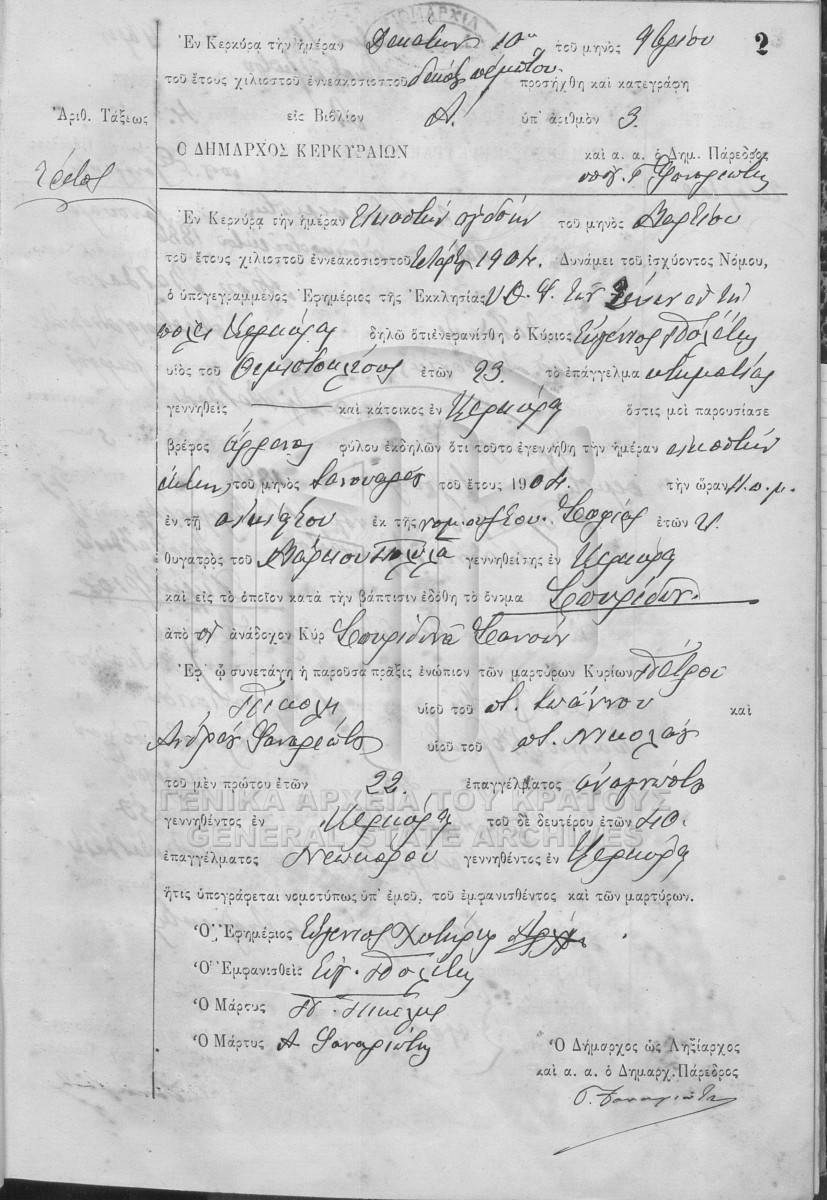 2
Ἐν Κερκύρᾳ τὴν ἡμέραν Δεκάτην 10ην τοῦ μηνὸς 9βρίου
τοῦ ἔτους χιλιοστοῦ ἐννεακοσιοστοῦ δεκάτου πέμπτου προσήχθη καὶ κατεγράφη
Ἀριθ. Τάξεως εἰς Βιβλίον Α. ὑπ' ἀριθμὸν 3.
Ο ΔΗΜΑΡΧΟΣ ΚΕΡΚΥΡΑΙΩΝ καὶ α. α. ὁ Δημ. Πάρεδρος
τρίτος
ὑπογ. Γ Φαναριώτης
Ἐν Κερκύρᾳ τὴν ἡμέραν εἰκοστὴν ὀγδόην τοῦ μηνὸς Μαρτίου
τοῦ ἔτους χιλιοστοῦ ἐννεακοσιοστοῦ τετάρτου 1904. Δυνάμει τοῦ ἰσχύοντος Νόμου,
ὁ ὑπογεγραμμένος Ἐφημέριος τῆς Ἐκκλησίας Υ. Θ. τῶν Ξένων ἐν τῇ
πόλει Κερκύρας δηλῶ ὅτι ἐνεφανίσθη ὁ Κύριος Εὐγένιος Πολίτης
υἱὸς τοῦ Θεμιστοκλέους ἐτῶν 23. τὸ ἐπάγγελμα κτηματίας
γεννηθεὶς καὶ κάτοικος ἐν Κερκύρᾳ ὅστις μοὶ παρουσίασε
βρέφος ἄρρενος φύλου ἐκδηλῶν ὅτι τοῦτο ἐγεννήθη τὴν ἡμέραν εἰκοστὴν
ἕκτην τοῦ μηνὸς Ἰανουαρίου τοῦ ἔτους 1904. τὴν ὥραν π.μ.
ἐν τῇ οἰκίᾳ του ἐκ τῆς νομ. συζ. του Σοφίας ἐτῶν
θυγατρὸς τοῦ Μάρκου Πολυλᾶ γεννηθείσης ἐν Κερκύρᾳ
καὶ εἰς τὸ ὁποῖον κατὰ τὴν βάπτισιν ἐδόθη τὸ ὄνομα Σπυρίδων.
ἀπὸ τὸν ἀνάδοχον Κύρ Σπυρίδωνα
Ἐφ' ᾧ συνετάγη ἡ παροῦσα πρᾶξις ἐνώπιον τῶν μαρτύρων Κυρίων Πέτρου
Πικολη υἱοῦ τοῦ π. Ἰωάννου καὶ
Ἀνδρέα Φαναριώτη υἱοῦ τοῦ π. Νικολάου
τοῦ μὲν πρώτου ἐτῶν 22. ἐπαγγέλματος ἀναγνώστη
ΓΕΝΙΚΑ ΑΡΧΕΙΑ ΤΟΥ ΚΡΑΤΟΥΣ
γεννηθέντος ἐν Κερκύρᾳ τοῦ δὲ δευτέρου ἐτῶν 40.
GENERAL STATE ARCHIVES
ἐπαγγέλματος Νεωκόρου γεννηθέντος ἐν Κερκύρᾳ
ἥτις ὑπογράφεται νομοτύπως ὑπ' ἐμοῦ, τοῦ ἐμφανισθέντος καὶ τῶν μαρτύρων.
Ὁ Ἐφημέριος Εὐγένιος
Ὁ Ἐμφανισθεὶς Εὐγ. Πολίτης
Ὁ Μάρτυς Π. Πικολης
Ὁ Μάρτυς Α Φαναριώτης
Ὁ Δήμαρχος ὡς Ληξίαρχος
καὶ α. α. ὁ Δημαρχ. Πάρεδρος
Γ. Φαναριώτης